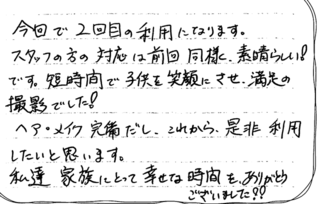 今回で2回目の利用になります。
スタッフの方の対応は前回同様に、素晴らしい!
です。短時間で子供を笑顔にさせ、満足の
撮影でした!
ヘア・メイク完備だし、これから、是非利用
したいと思います。
私達家族にとって幸せな時間を、ありがとう
ございました!!